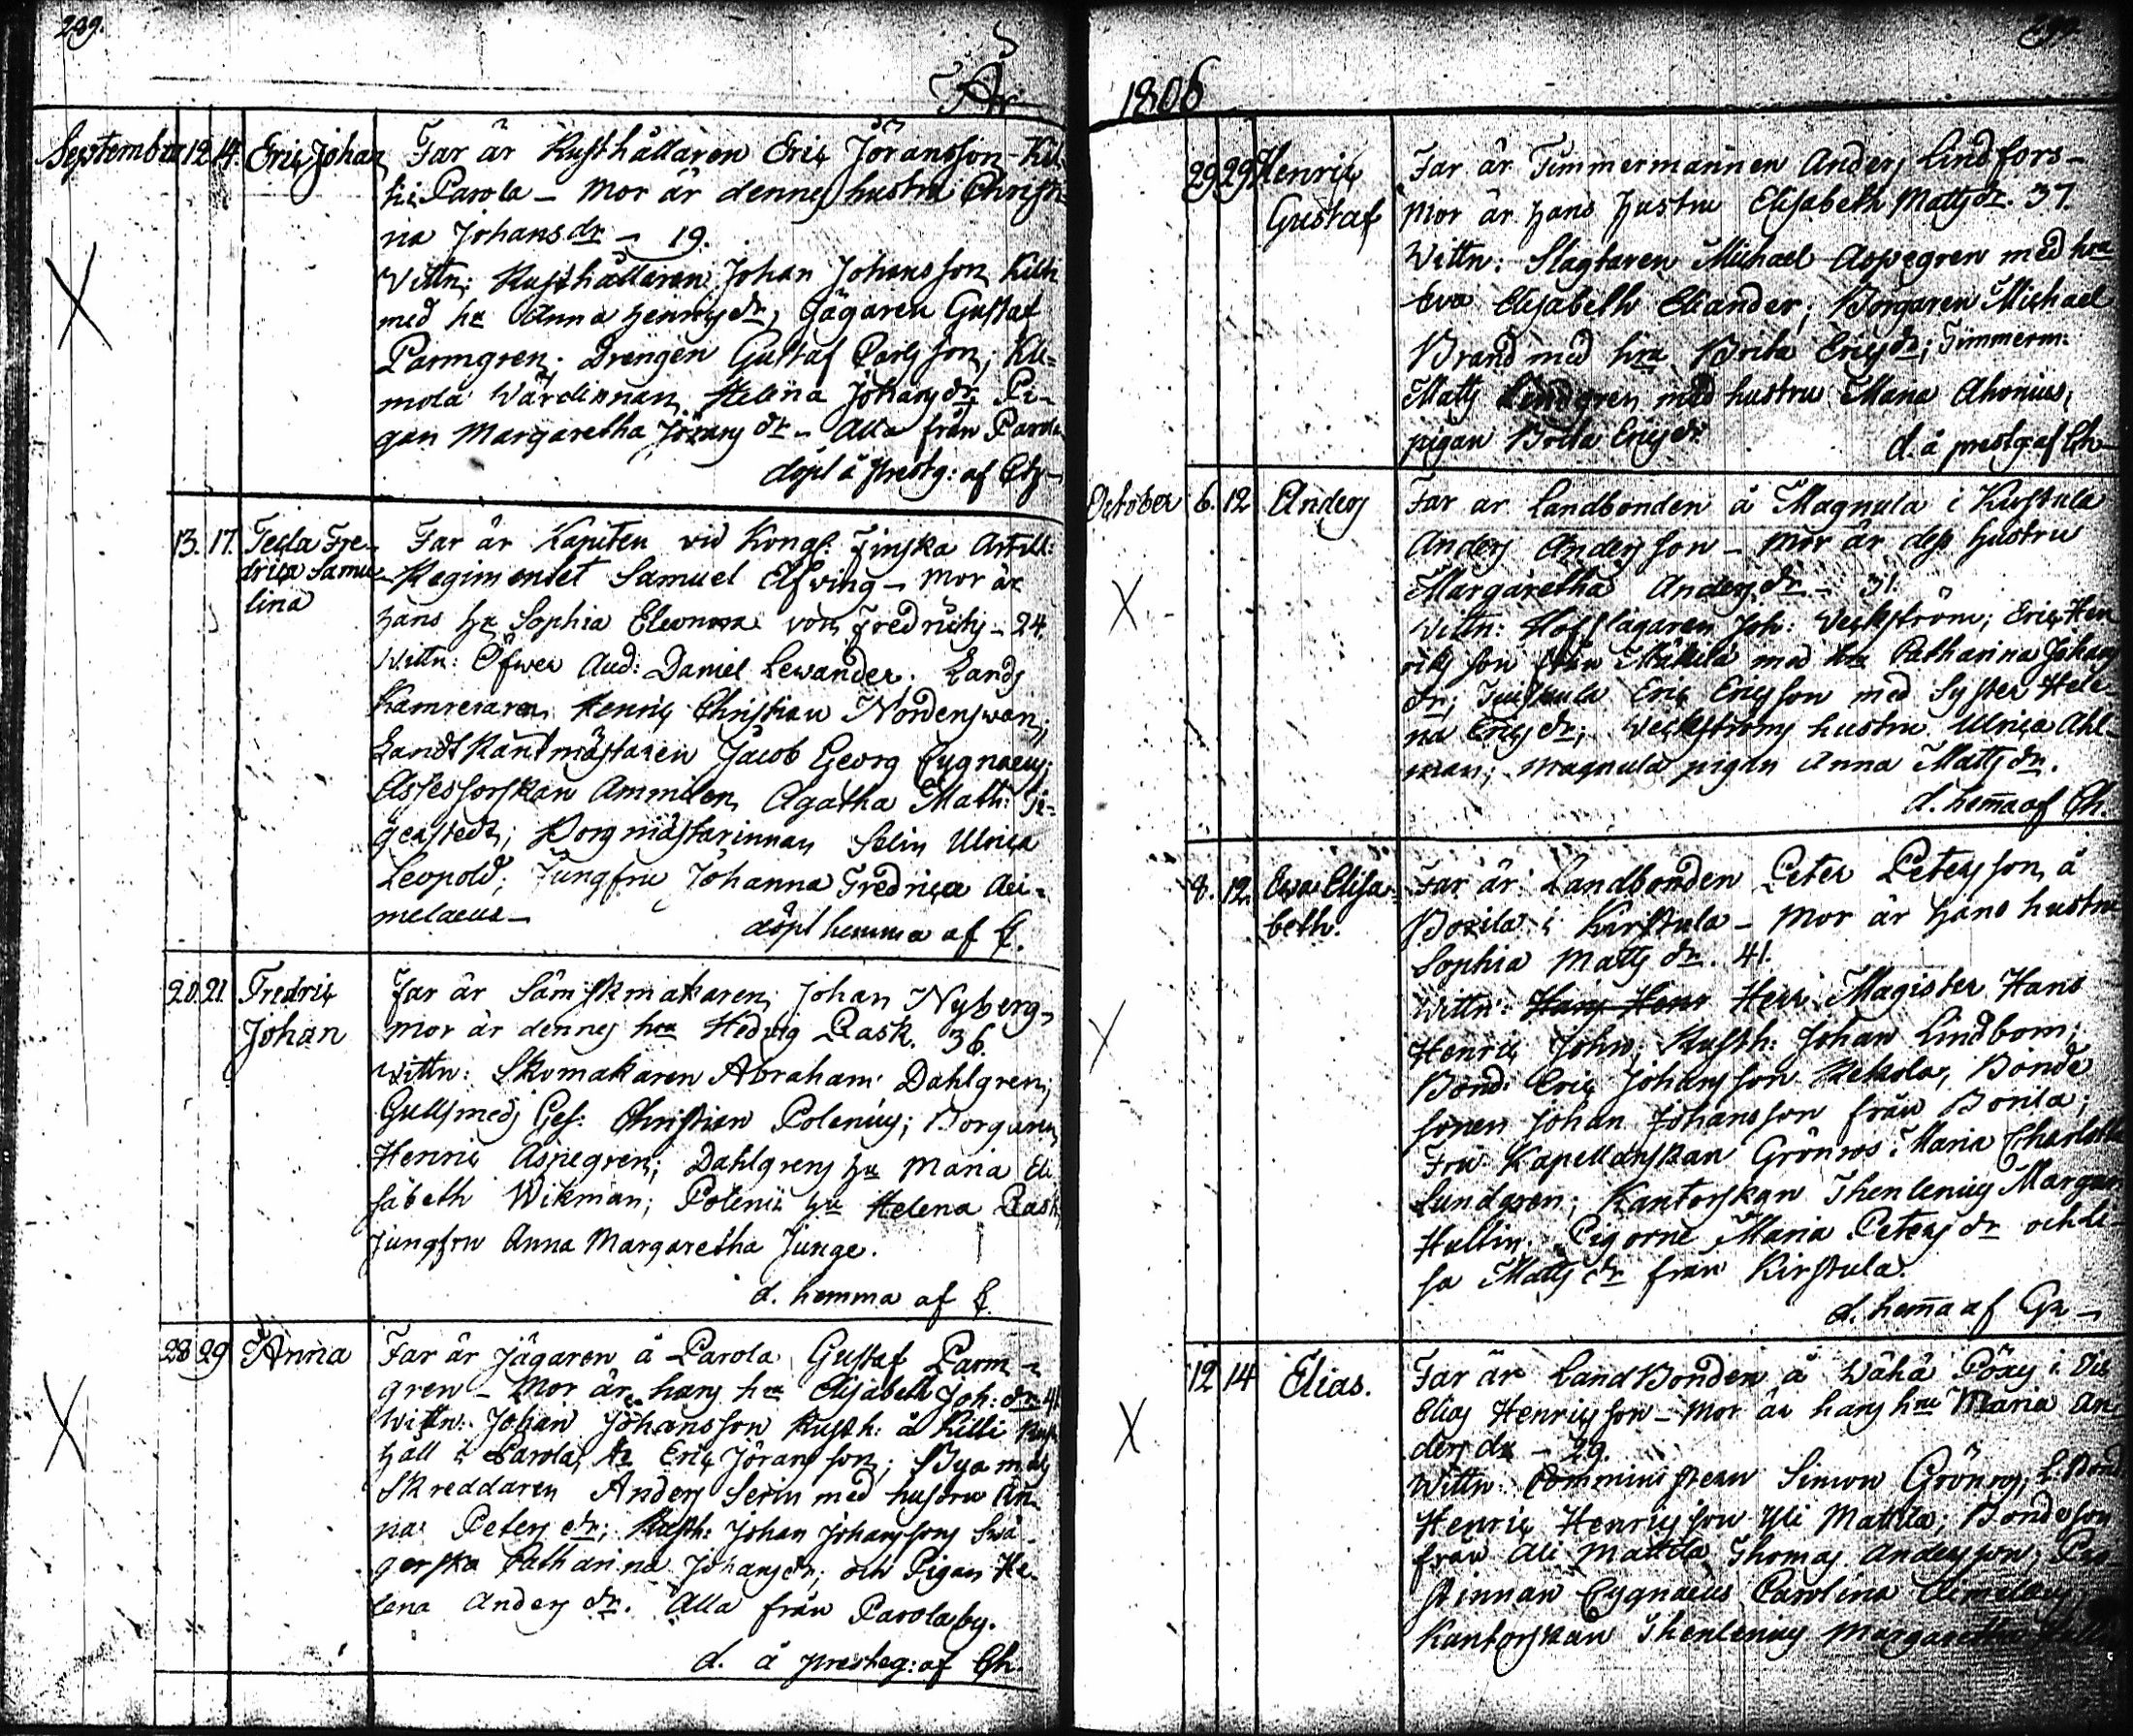 209.
År
Septemb 12. 14. Eric Johan Far är Rusthållaren Eric Jöransson - Kil
hi Parola - Mor är dennes hustru Christi
na Johans dr - 19.
Wittn: Rusthållaren Johan Johansson Killi
med hu Anna Henrics dr, Jägaren Gustaf
Parmgren; Drengen Gustaf Carlsson; Kle-
mola Wärdinnan Helena Johans dr; Pi-
gan Margaretha Jörans dr - Alla från Parola
döpt å prestg: af
13. 17. Tecla Fre- Far är Kapiten vid Kongl: Finska Artill:
drica Samu- Regimentet Samuel Elfving - Mor är
lina
hans hu Sophia Eleonora von Fredrichs - 24.
Wittn: Öfwer Aud: Daniel Lewander. Lands
Kamreraren Henric Christian Nordenswan;
Landt Räntmästaren Jacob Georg Cygnaeus;
Assessorskan Amminen Agatha Math:
gerstedt; Borgmästarinnan Selin Ulrica
Leopold; Jungfru Johanna Fredrica Aei-
melaeus -
döpt hemma af C.
20. 21. Fredric Far är Sämskmakaren Johan Nyberg -
Johan Mor är dennes hru Hedvig Rask. 36.
Wittn: Skomakaren Abraham Dahlgren;
Gullsmeds Ges: Christian Polenius; Borgaren
Henric Aspegren; Dahlgrens hu Maria Eli
sabeth Wikman; Polenii hu Helena Rask
Jungfru Anna Margaretha Junge.
d. hemma af C.
28 29 Anna Far är Jägaren å Parola Gustaf Parm-
gren - Mor är hans hru Elisabeth Joh: dr: 41
Wittn: Johan Johansson Rusth: å Killi Rust
håll i Parola, Eric Jöransson; Bya
Skreddaren Anders Serin med hustru An-
na Peters dr; Rusth: Johan Johanssons Swä-
gerska Catharina Johans dr; och Pigan He-
lena Anders dr. Alla från Parola by.
d. å presteg: af Ch.
1806
29 29 Henric Far är Timmermannen Anders Lindfors -
Gustaf Mor är hans hustru Elisabeth Matts dr. 37.
Wittn: Slagtaren Michael Aspegren med hru
Eva Elisabeth Eliander; Borgaren Michael
Brand med hru Brita Erics dr; Timmerm:
Matts Lindgren med hustru Maria Ahonius,
pigan Brita Erics dr.
d. å prestg: af Ch -
October 6. 12 Anders Far är Landbonden å Magnula i Kirstula
Anders Andersson - Mor är dess hustru
Margaretha Anders dr - 31.
Wittn: Hofslagaren Joh: Weckström; Eric Hen
rics son från Mäkelä med hru Catharina Johans
dr; Eric Ericsson med Syster Hele-
na Erics dr; Weckströms hustru Ulrica Ahl-
man; Magnula pigan Anna Matts dr.
d. hema af Ch.
8. 12. Ewa Elisa- Far är Landbonden Peter Petersson å
beth. Borila i Kirstula - Mor är hans hustru
Sophia Matts dr. 41.
Wittn: Herr Magister Hans
Henric John; Rusth: Johan Lindbom;
Bond: Eric Johansson Kekola; Bonde
sonen Johan Johansson från Borila;
Fru Kapellanskan Grönros Maria Charlotta
Lundgren; Kantorskan Thenlenius Margar
Hellin; Pigorne Maria Peters dr och Li-
sa Matts dr från Kirstula.
d. hema af Gr -
12 14 Elias. Far är LandBonden å Wähä Pöxy i
Elias Henricsson - Mor är hans hru Maria An-
ders dr - 29.
Wittn: Comministern Simon Grönros; L. Bond
Henric Henricsson Yli Mattila; Bondeson
från Ali Mattila Thomas Andersson; Pro-
stinnan Cygnaeus Carolina Aimelaeus
Kantorskan Thenlenius Margaretha